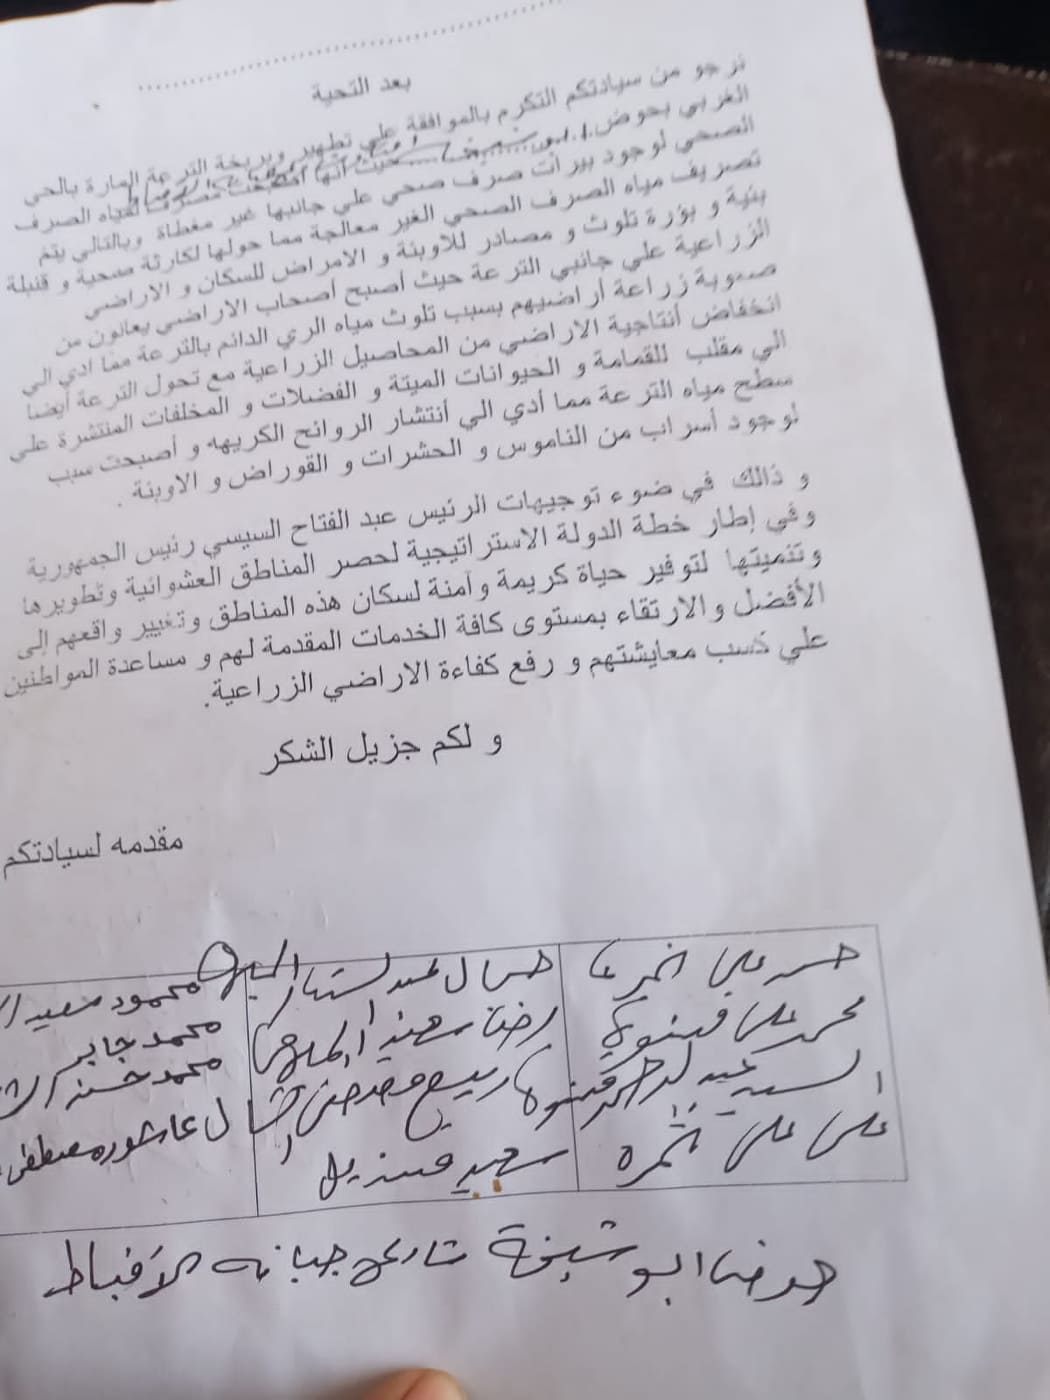 بعد التحية
نرجو من سيادتكم التكرم بالموافقة علي تطهير وبربخة الترعة المارة بالحي
الغربي بحوض ابو شيخة حيث أنها أصبحت مصرف لمياه الصرف
الصحي لوجود بيرات صرف صحي علي جانبها غير مغطاة وبالتالي يتم
تصريف مياه الصرف الصحي الغير معالجة مما حولها لكارثة صحية و قنبلة
بنية و بؤرة تلوث و مصادر للاوبئة و الامراض للسكان و الاراضي
الزراعية علي جانبي الترعة حيث أصبح أصحاب الاراضي يعانون من
صعوبة زراعة أراضيهم بسبب تلوث مياه الري الدائم بالترعة مما ادي الي
انخفاض أنتاجية الاراضي من المحاصيل الزراعية مع تحول الترعة أيضا
الي مقلب للقمامة و الحيوانات الميتة و الفضلات و المخلفات المنتشرة علي
سطح مياه الترعة مما أدي الي أنتشار الروائح الكريهه و أصبحت سبب
لوجود أسراب من الناموس و الحشرات و القوراض و الاوبئة .
و ذالك في ضوء توجيهات الرئيس عبد الفتاح السيسي رئيس الجمهورية
وفي إطار خطة الدولة الاستراتيجية لحصر المناطق العشوائية وتطويرها
وتنميتها لتوفير حياة كريمة وآمنة لسكان هذه المناطق وتغيير واقعهم إلى
الأفضل والارتقاء بمستوى كافة الخدمات المقدمة لهم و مساعدة المواطنين
علي كسب معايشتهم و رفع كفاءة الاراضي الزراعية.
و لكم جزيل الشكر
مقدمه لسيادتكم
حسن علي
محمد علي
السيد عبد
علي علي
رضا سعيد
ربيع
سعيد قنديل
محمود سعيد
محمد جابر
محمد حسن
عاشور مصطفى
حوض ابو شيخة شارع جبانه الأقباط